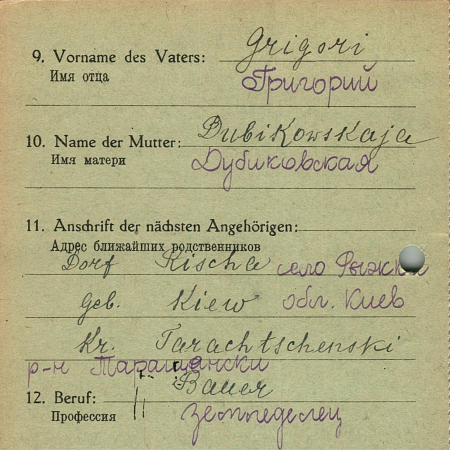 9. Vorname des Vaters: Grigori
Имя отца Григорий
10. Name der Mutter: Dubikowskaja
Имя матери Дубиковская
11. Anschrift der nächsten Angehörigen:
Адрес ближайших родственников
Dorf Rischa село
geb. Kiew обл. Киев
Kr. Tarachtschenski
р-н Таращански
12. Beruf: Bauer
Профессия земледелец